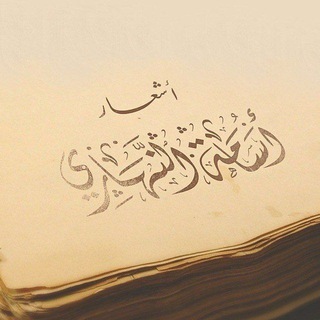 أشعار
أسامة السهاري